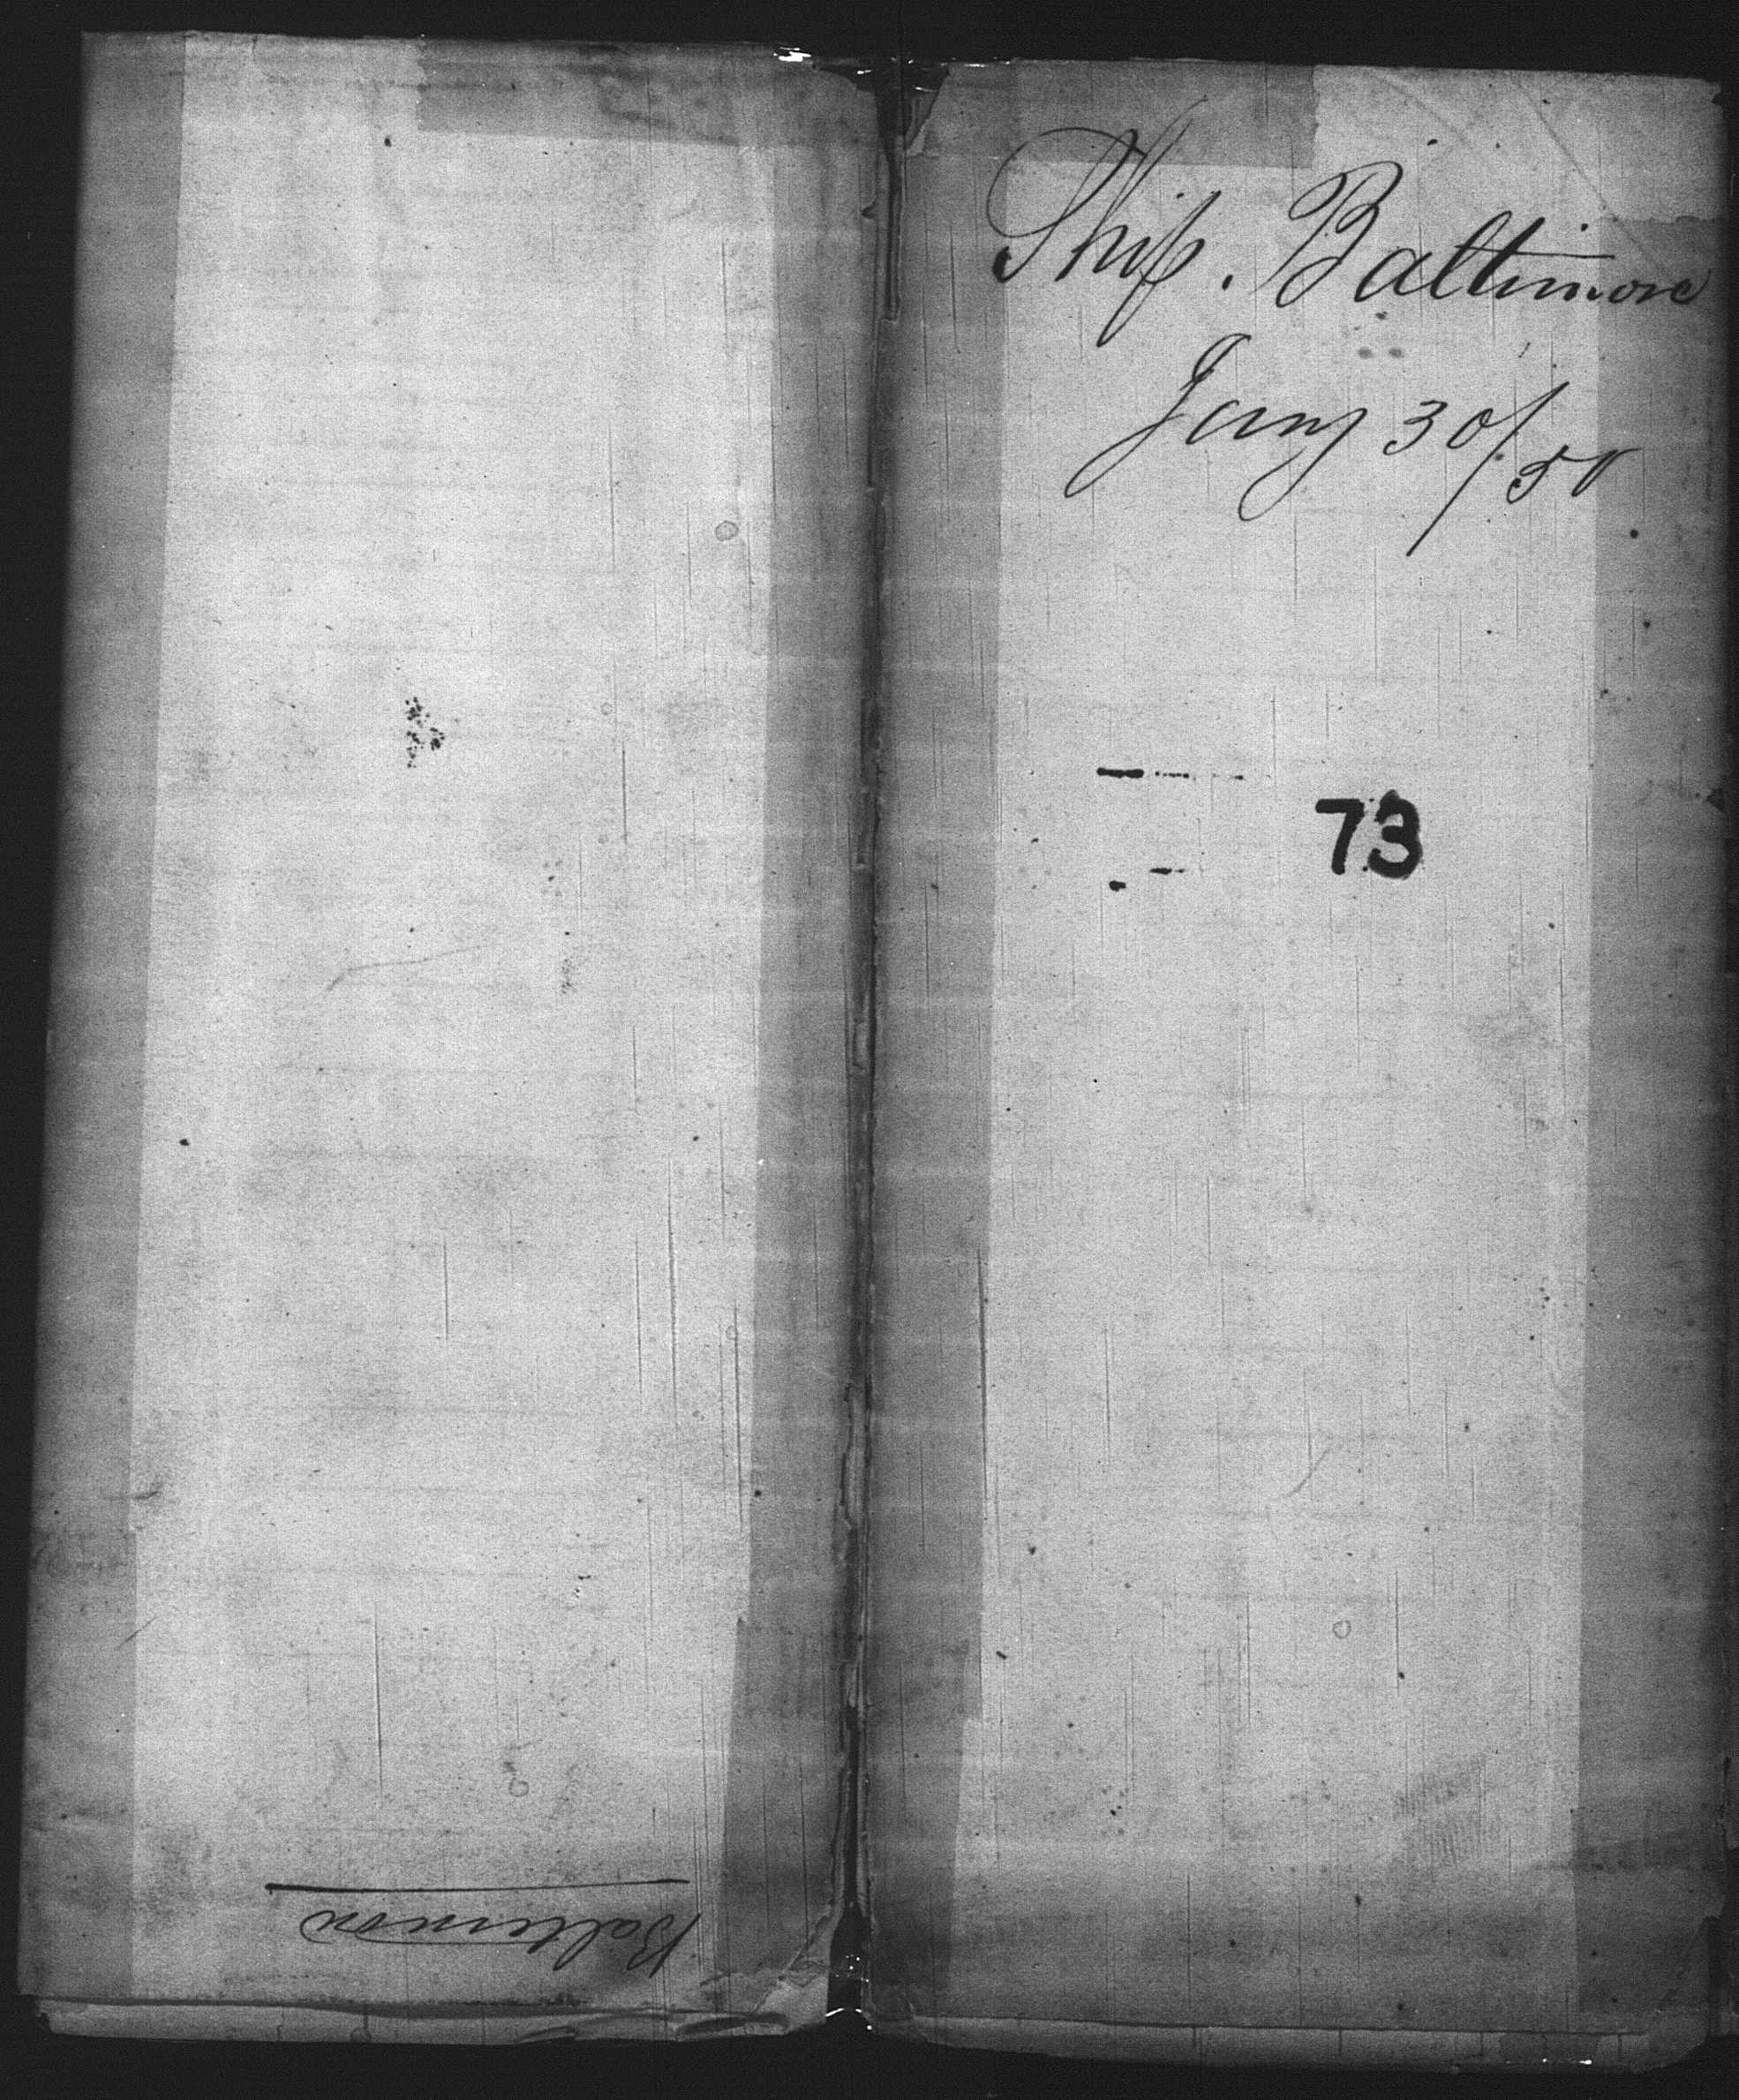 Ship. Baltimore
Jany 30/50
73
Baltimore